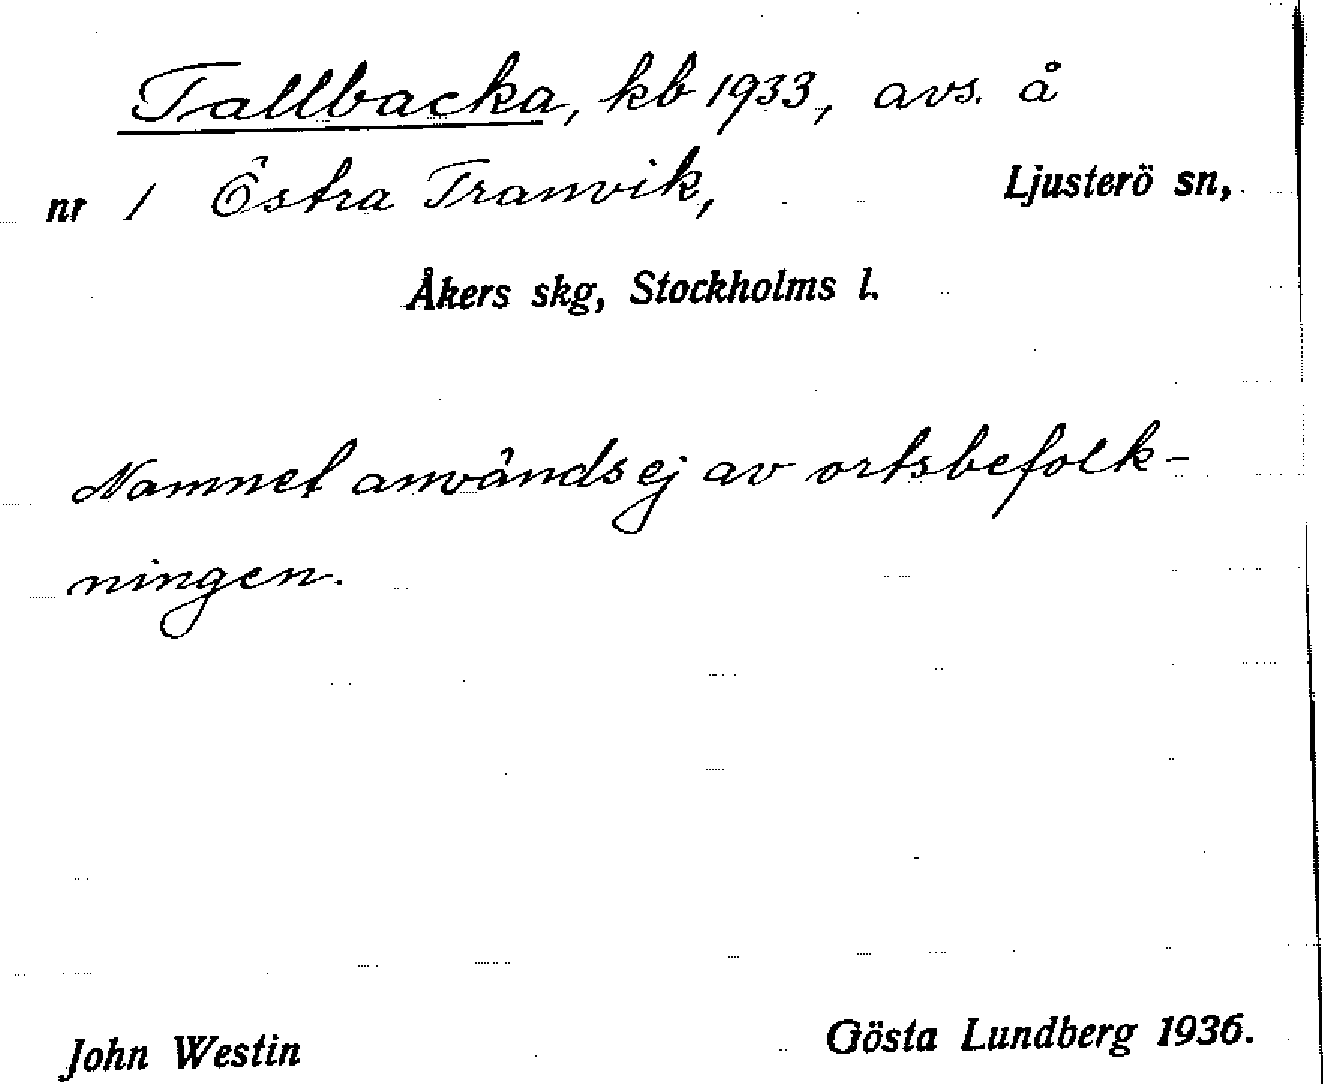 Tallbacka, kb 1933, avs. å
nr 1 Östra Tranvik, Ljusterö sn,
Åkers skg, Stockholms l.
Namnet används ej av ortsbefolk-
ningen.
John Westin Gösta Lundberg 1936.